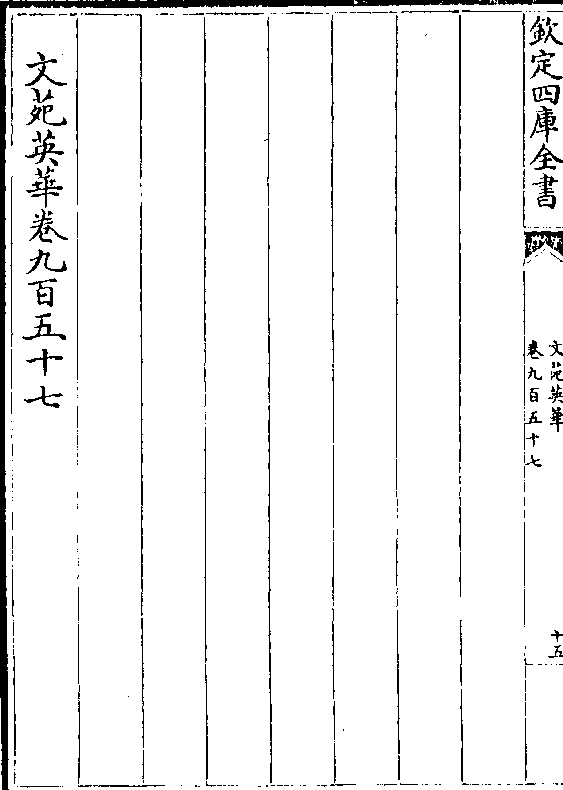 欽定四庫全書
文苑英華
卷九百五十七
十五
文苑英華卷九百五十七